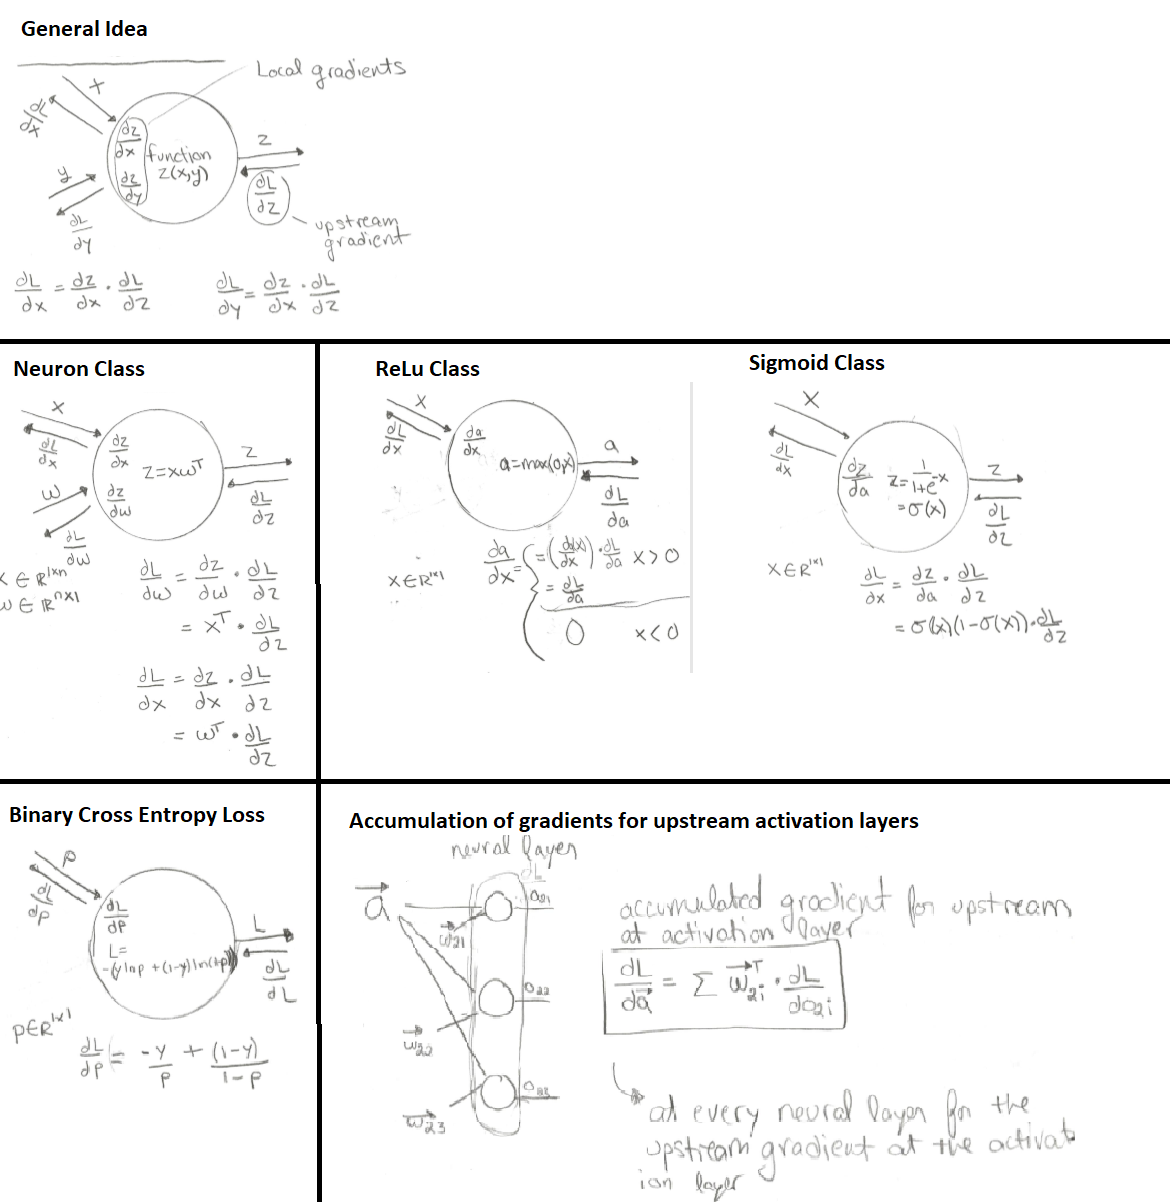 General Idea
Local gradients
x
dL/dx
dz/dx
function
z(x,y)
z
y
dz/dy
dL/dz
dL/dy
upstream
gradient
dL/dx = dz/dx · dL/dz
dL/dy = dz/dx · dL/dz
Neuron Class
x
dL/dx
dz/dx
z=xwᵀ
z
w
dz/dw
dL/dz
dL/dw
x ∈ ℝ¹ˣⁿ
w ∈ ℝⁿˣ¹
dL/dw = dz/dw · dL/dz
= xᵀ · dL/dz
dL/dx = dz/dx · dL/dz
= wᵀ · dL/dz
ReLu Class
x
dL/dx
da/dx
a=max(0,x)
a
dL/da
x∈R¹ˣ¹
da/dx = { =(d(x)/dx) · dL/da x>0
= dL/da
0 x<0
Sigmoid Class
x
dL/dx
dz/da
z= 1/1+e⁻ˣ
=σ(x)
z
dL/dz
x∈R¹ˣ¹
dL/dx = dz/da · dL/dz
= σ(x)(1-σ(x)) · dL/dz
Binary Cross Entropy Loss
p
dL/dp
dL/dp
L=
-(y lnp +(1-y)ln(1-p))
L
dL/dL
p∈R¹ˣ¹
dL/dp = -y/p + (1-y)/1-p
Accumulation of gradients for upstream activation layers
neural layer
a⃗
a₂₁
w⃗₂₁
a₂₂
w⃗₂₂
w⃗₂₃
accumulated gradient for upstream
at activation layer
dL/da⃗ = Σ w⃗₂ᵢᵀ · dL/da₂ᵢ
at every neural layer for the
upstream gradient at the activat
ion layer